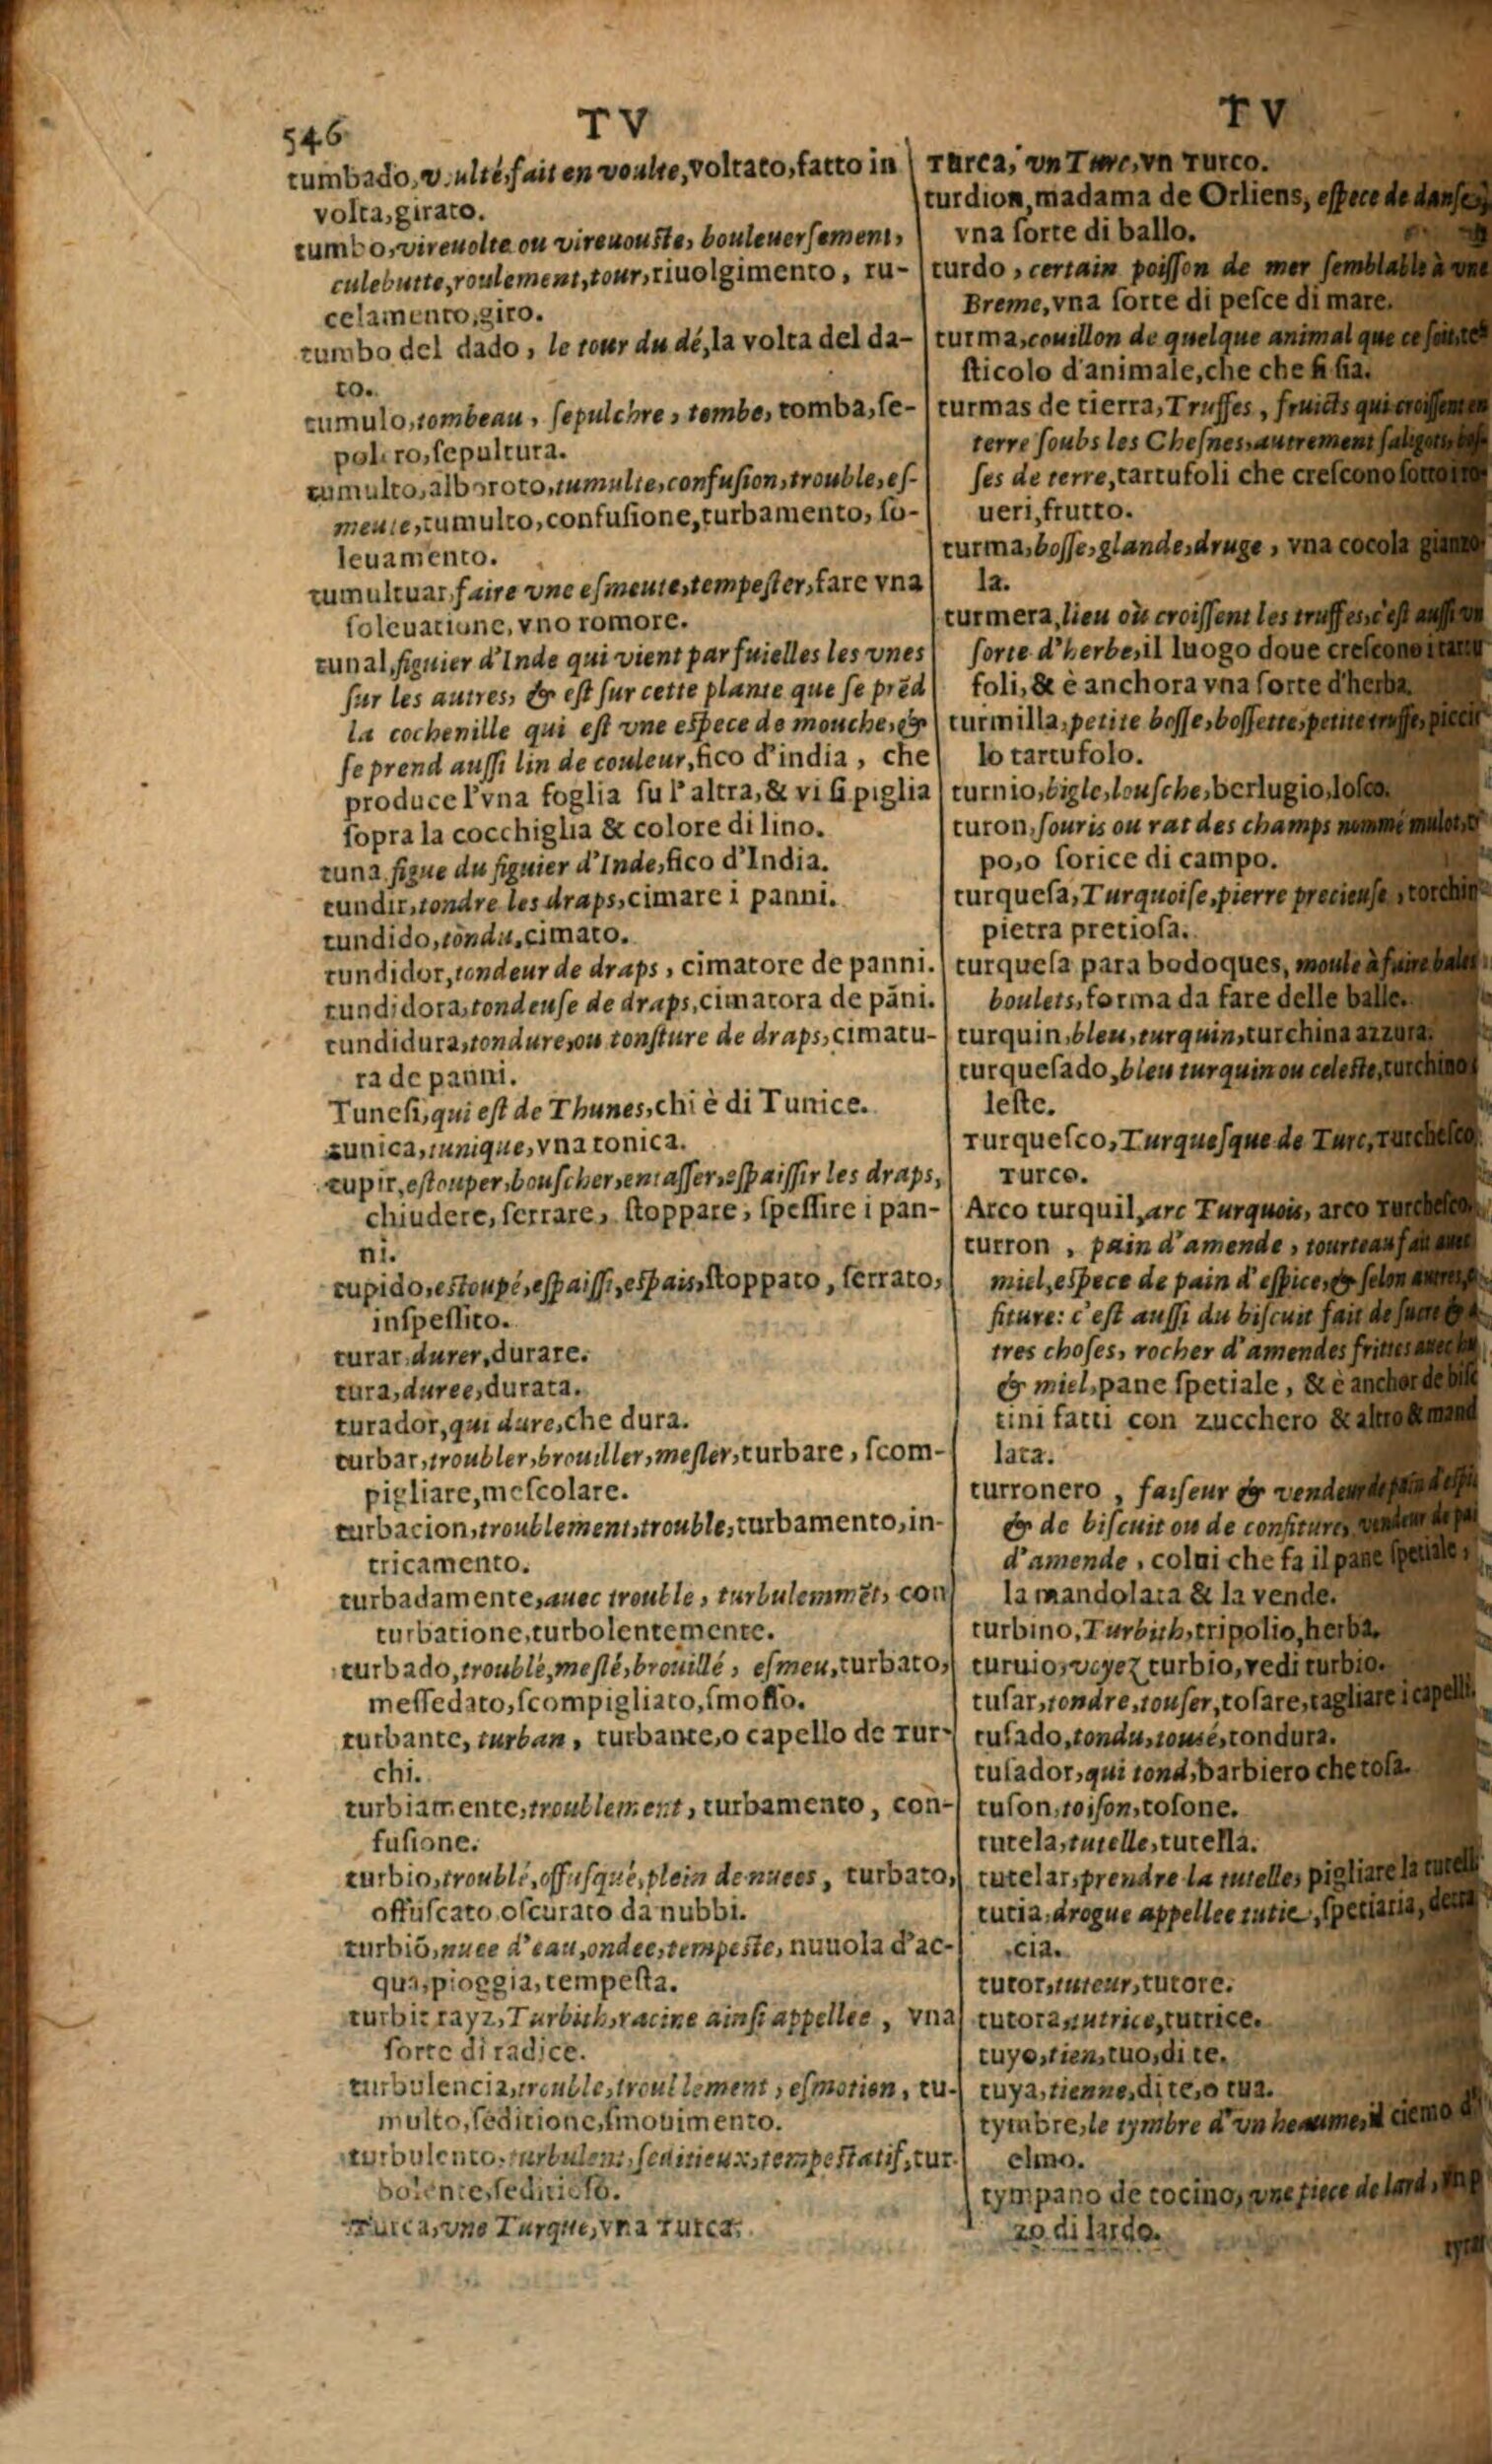 546
TV
tumbado, v.ulté, fait en voulte, voltato, fatto in
volta, girato.
tumbo, vireuolte ou vireuouste, bouleuersement,
culebutte, roulement, tour, riuolgimento, ru-
celamento, giro.
tumbo del dado, le tour du dé, la volta del da-
to.
tumulo, tombeau, sepulchre, tombe, tomba, se-
polcro, sepultura.
tumulto, alboroto, tumulte, confusion, trouble, es-
meute, tumulto, confusione, turbamento, so-
leuamento.
tumultuar, faire vne esmeute, tempester, fare vna
soleuatione, vno romore.
tunal, figuier d'Inde qui vient par fuielles les vnes
sur les autres, & est sur cette plante que se prẽd
la cochenille qui est vne espece de mouche, &
se prend aussi lin de couleur, fico d'india, che
produce l'vna foglia su l'altra, & vi si piglia
sopra la cocchiglia & colore di lino.
tuna figue du figuier d'Inde, fico d'India.
tundir, tondre les draps, cimare i panni.
tundido, tondu, cimato.
tundidor, tondeur de draps, cimatore de panni.
tundidora, tondeuse de draps, cimatora de pãni.
tundidura, tondure, ou tonsture de draps, cimatu-
ra de panni.
Tunesi, qui est de Thunes, chi è di Tunice.
tunica, tunique, vna tonica.
tupir, estouper, bouscher, entasser, espaissir les draps,
chiudere, serrare, stoppare, spessire i pan-
ni.
tupido, estoupé, espaissi, espais, stoppato, serrato,
inspessito.
turar, durer, durare.
tura, duree, durata.
turador, qui dure, che dura.
turbar, troubler, brouiller, mesler, turbare, scom-
pigliare, mescolare.
turbacion, troublement, trouble, turbamento, in-
tricamento.
turbadamente, auec trouble, turbulemmẽt, con
turbatione, turbolentemente.
turbado, troublé, meslé, brouillé, esmeu, turbato,
messedato, scompigliato, smosso.
turbante, turban, turbante, o capello de Tur-
chi.
turbiamente, troublement, turbamento, con-
fusione.
turbio, troublé, offusqué, plein de nuees, turbato,
offuscato oscurato da nubbi.
turbiõ, nuee d'eau, ondee, tempeste, nuuola d'ac-
qua, pioggia, tempesta.
turbit rayz, Turbith, racine ainsi appellee, vna
sorte di radice.
turbulencia, trouble, troublement, esmotion, tu-
multo, seditione, smouimento.
turbulento, turbulent, seditieux, tempestatif, tur-
bolente, seditioso.
Turca, vne Turque, vna Turca.
TV
Turca, vn Turc, vn Turco.
turdion, madama de Orliens, espece de danse,
vna sorte di ballo.
turdo, certain poisson de mer semblable à vne
Breme, vna sorte di pesce di mare.
turma, couillon de quelque animal que ce soit, te-
sticolo d'animale, che che si sia.
turmas de tierra, Truffes, fruicts qui croissent en
terre soubs les Chesnes, autrement saligots, bos-
ses de terre, tartufoli che crescono sotto i ro-
ueri, frutto.
turma, bosse, glande, druge, vna cocola gianzo-
la.
turmera, lieu où croissent les truffes, c'est aussi vn
sorte d'herbe, il luogo doue crescono i tartu
foli, & è anchora vna sorte d'herba.
turmilla, petite bosse, bossette, petite truffe, piccio
lo tartufolo.
turnio, bigle, lousche, berlugio, losco.
turon, souris ou rat des champs nommé mulot, to
po, o sorice di campo.
turquesa, Turquoise, pierre precieuse, torchin
pietra pretiosa.
turquesa para bodoques, moule à faire bales
boulets, forma da fare delle balle.
turquin, bleu, turquin, turchina azzura.
turquesado, bleu turquin ou celeste, turchino
leste.
Turquesco, Turquesque de Turc, Turchesco
Turco.
Arco turquil, arc Turquois, arco Turchesco.
turron, pain d'amende, tourteau fait auec
miel, espece de pain d'espice, & selon autres,
fiture: c'est aussi du biscuit fait de sucre &
tres choses, rocher d'amendes frittes auec
& miel, pane spetiale, & è anchor de bisc
tini fatti con zucchero & altro & mand
lata.
turronero, faiseur & vendeur de pain d'espi
& de biscuit ou de confiture, vendeur de pai
d'amende, colui che fa il pane spetiale,
la mandolata & la vende.
turbino, Turbith, tripolio, herba.
turuio, voyez turbio, vedi turbio.
tusar, tondre, touser, tosare, tagliare i capelli.
tusado, tondu, tousé, tondura.
tusador, qui tond, barbiero che tosa.
tuson, toison, tosone.
tutela, tutelle, tutella.
tutelar, prendre la tutelle, pigliare la tutell
tutia, drogue appellee tutie, spetiaria, detta
cia.
tutor, tuteur, tutore.
tutora, tutrice, tutrice.
tuyo, tien, tuo, di te.
tuya, tienne, di te, o tua.
tymbre, le tymbre d'vn heaume, il ciemo d'
elmo.
tympano de tocino, vne piece de lard, vn p
zo di lardo.